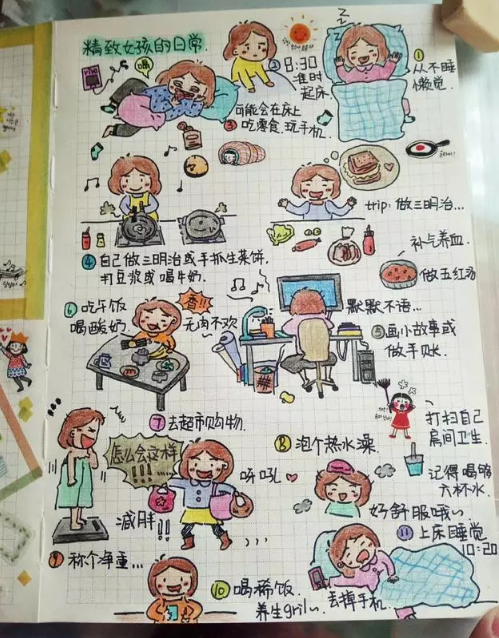 精致女孩的日常.
① 从不睡
懒觉.
② 8:30
准时
起床.
喝
可能会在床上
③ 吃零食,玩手机.
trip: 做三明治...
④ 自己做三明治或手抓生菜饼,
打豆浆或喝牛奶.
补气养血.
做五红汤
⑥ 吃午饭
喝酸奶.
香!!
无肉不欢
默默不语...
⑤ 画小故事或
做手账.
⑦ 去超市购物.
打扫自己
房间卫生.
怎么会这样
!!!
⑧ 泡个热水澡.
呀吼
记得喝够
六杯水.
减肥!!!
好舒服哦~
⑨ 称个净重...
⑪ 上床睡觉
10:20
⑩ 喝稀饭.
养生gril~
丢掉手机.